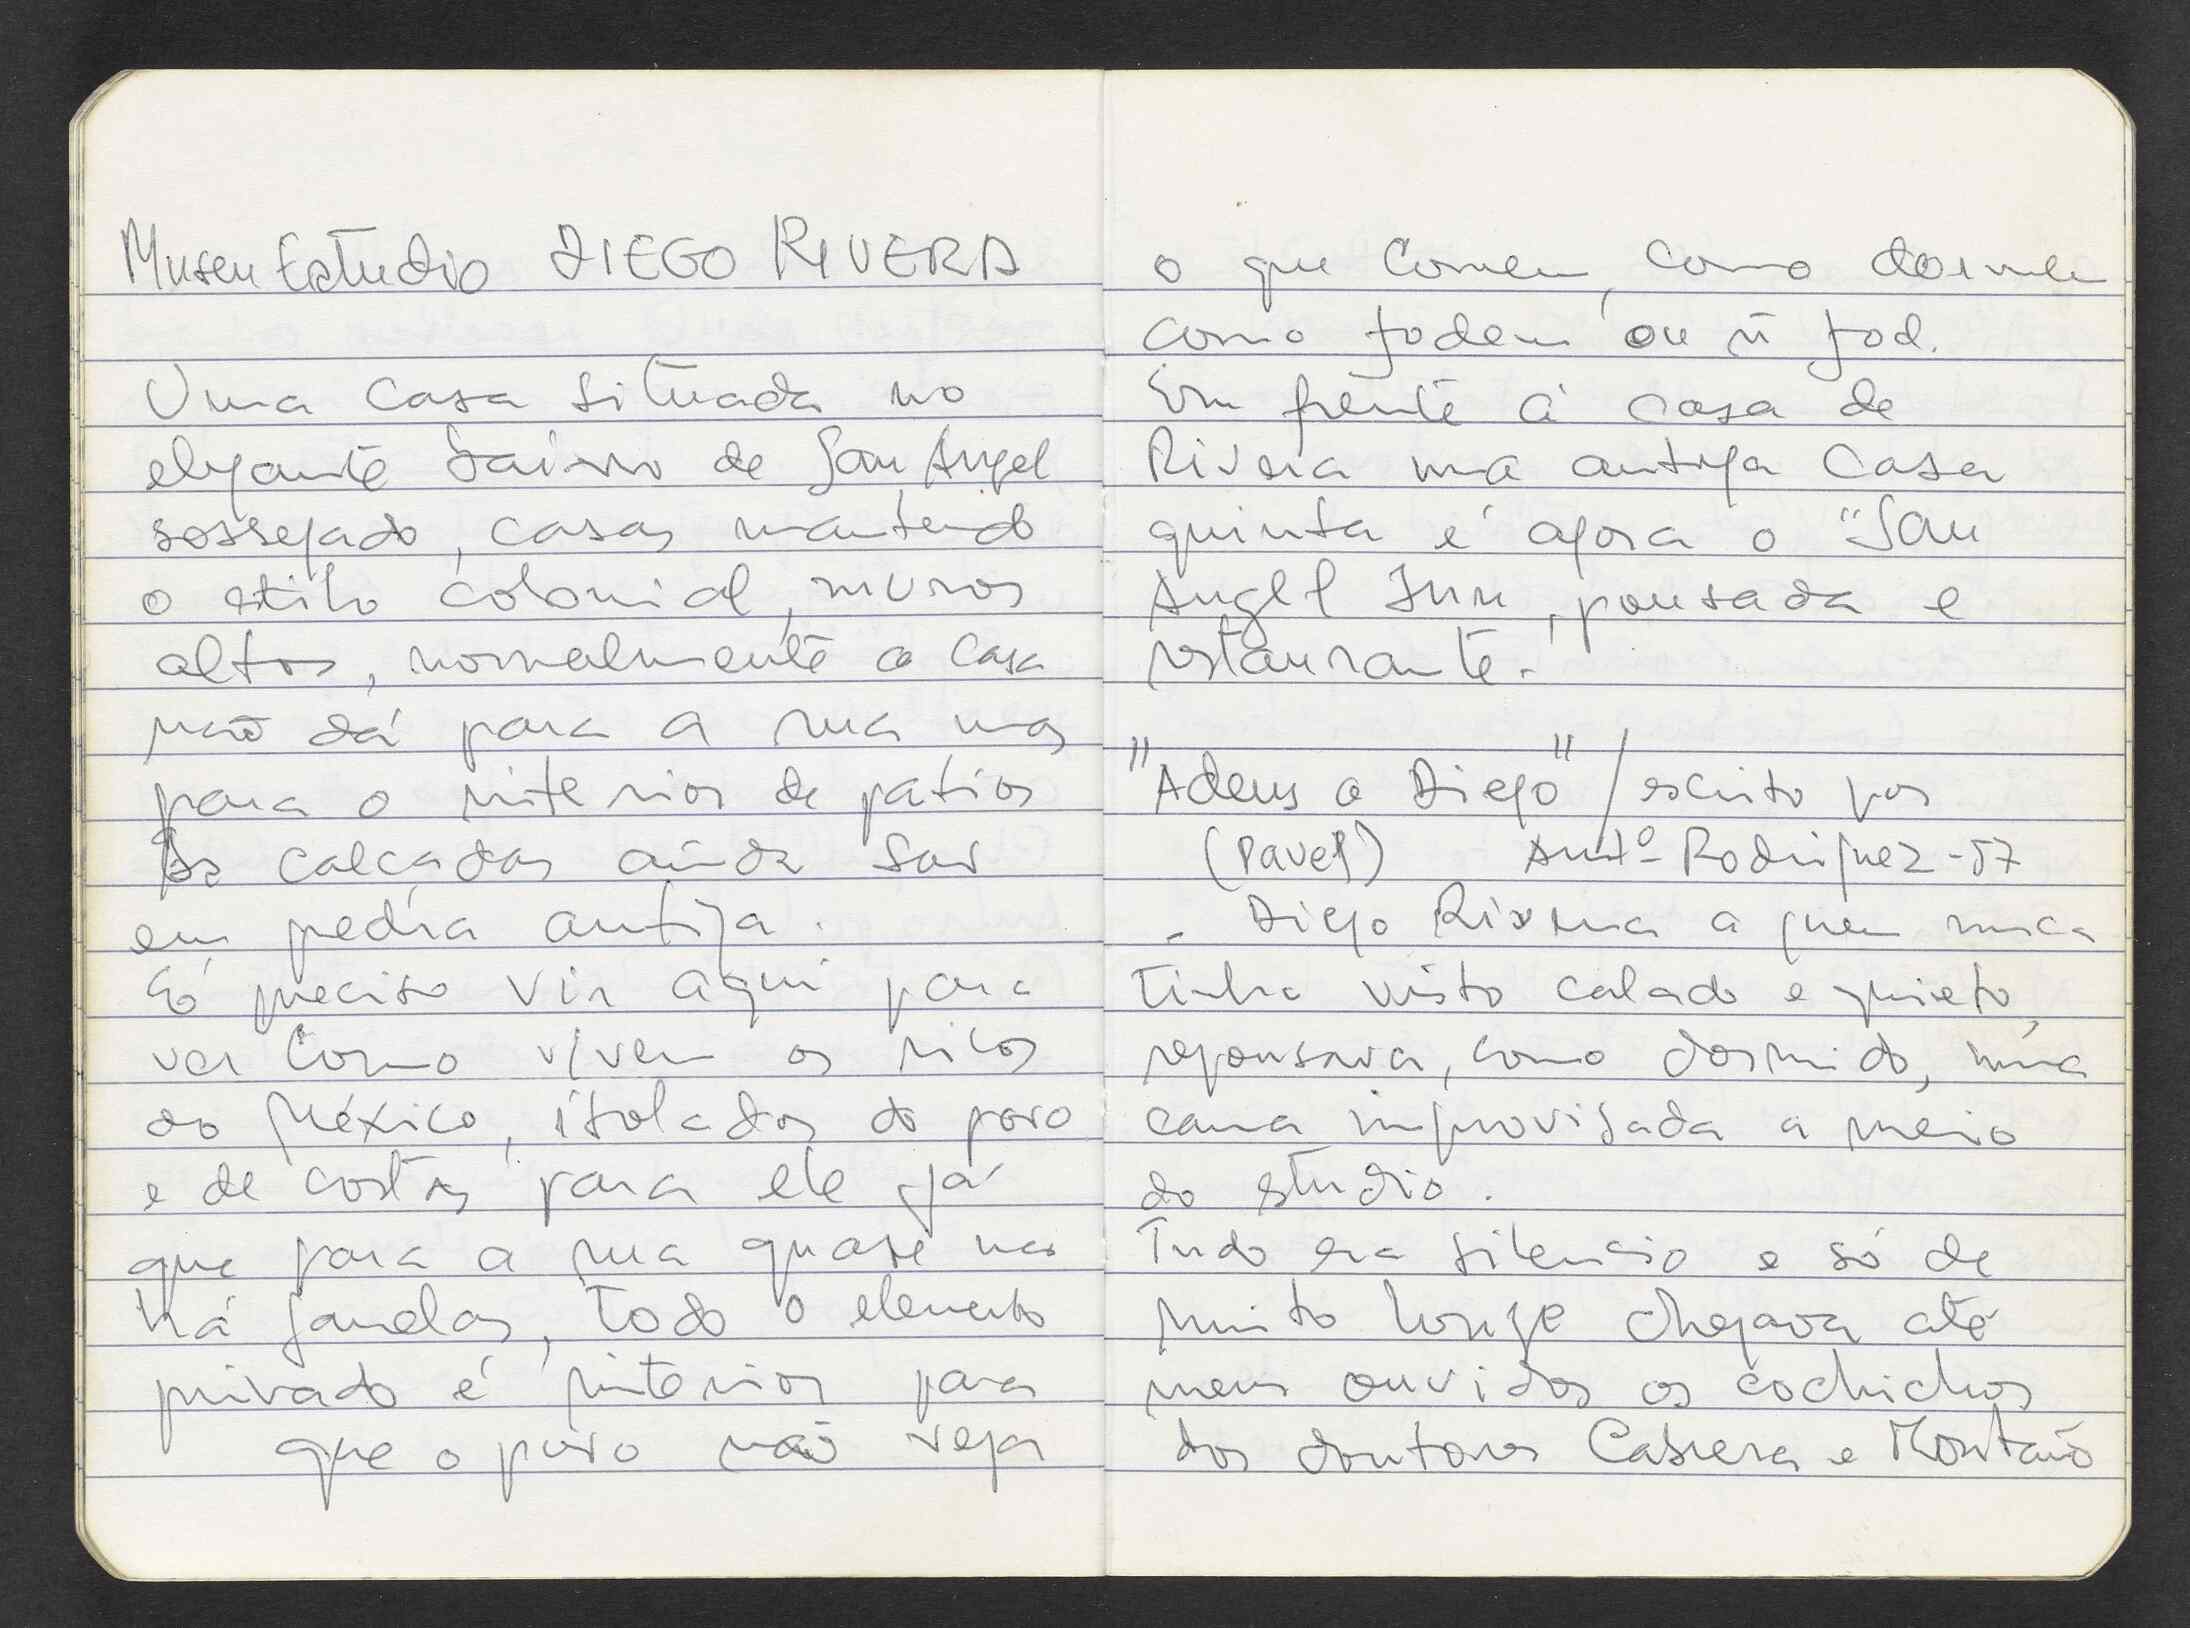 Museu Estudio DIEGO RIVERA
Uma casa situada no
elegante bairro de San Angel
sossegado, casas mantendo
o estilo colonial, muros
altos, normalmente a casa
não dá para a rua mas
para o interior de patios
As calçadas ainda são
em pedra antiga.
É preciso vir aqui para
ver como vivem os ricos
do México, isolados do povo
e de costas para ele já
que para a rua quase não
há janelas, todo o elemento
privado é interior para
que o povo não veja
o que comem, como dormem
como fodem ou ñ fod.
Em frente à casa de
Rivera uma antiga casa
quinta é agora o "San
Angel Inn, pousada e
restaurante.
"Adeus a Diego" / escrito por
(Pavel) Antº Rodriguez - 57
- Diego Rivera a quem nunca
tinha visto calado e quieto,
repousava, como dormido, numa
cama improvisada a meio
do studio.
Tudo era silencio e só de
muito longe chegava até
meus ouvidos os cochichos
dos doutores Cabrera e Montaño